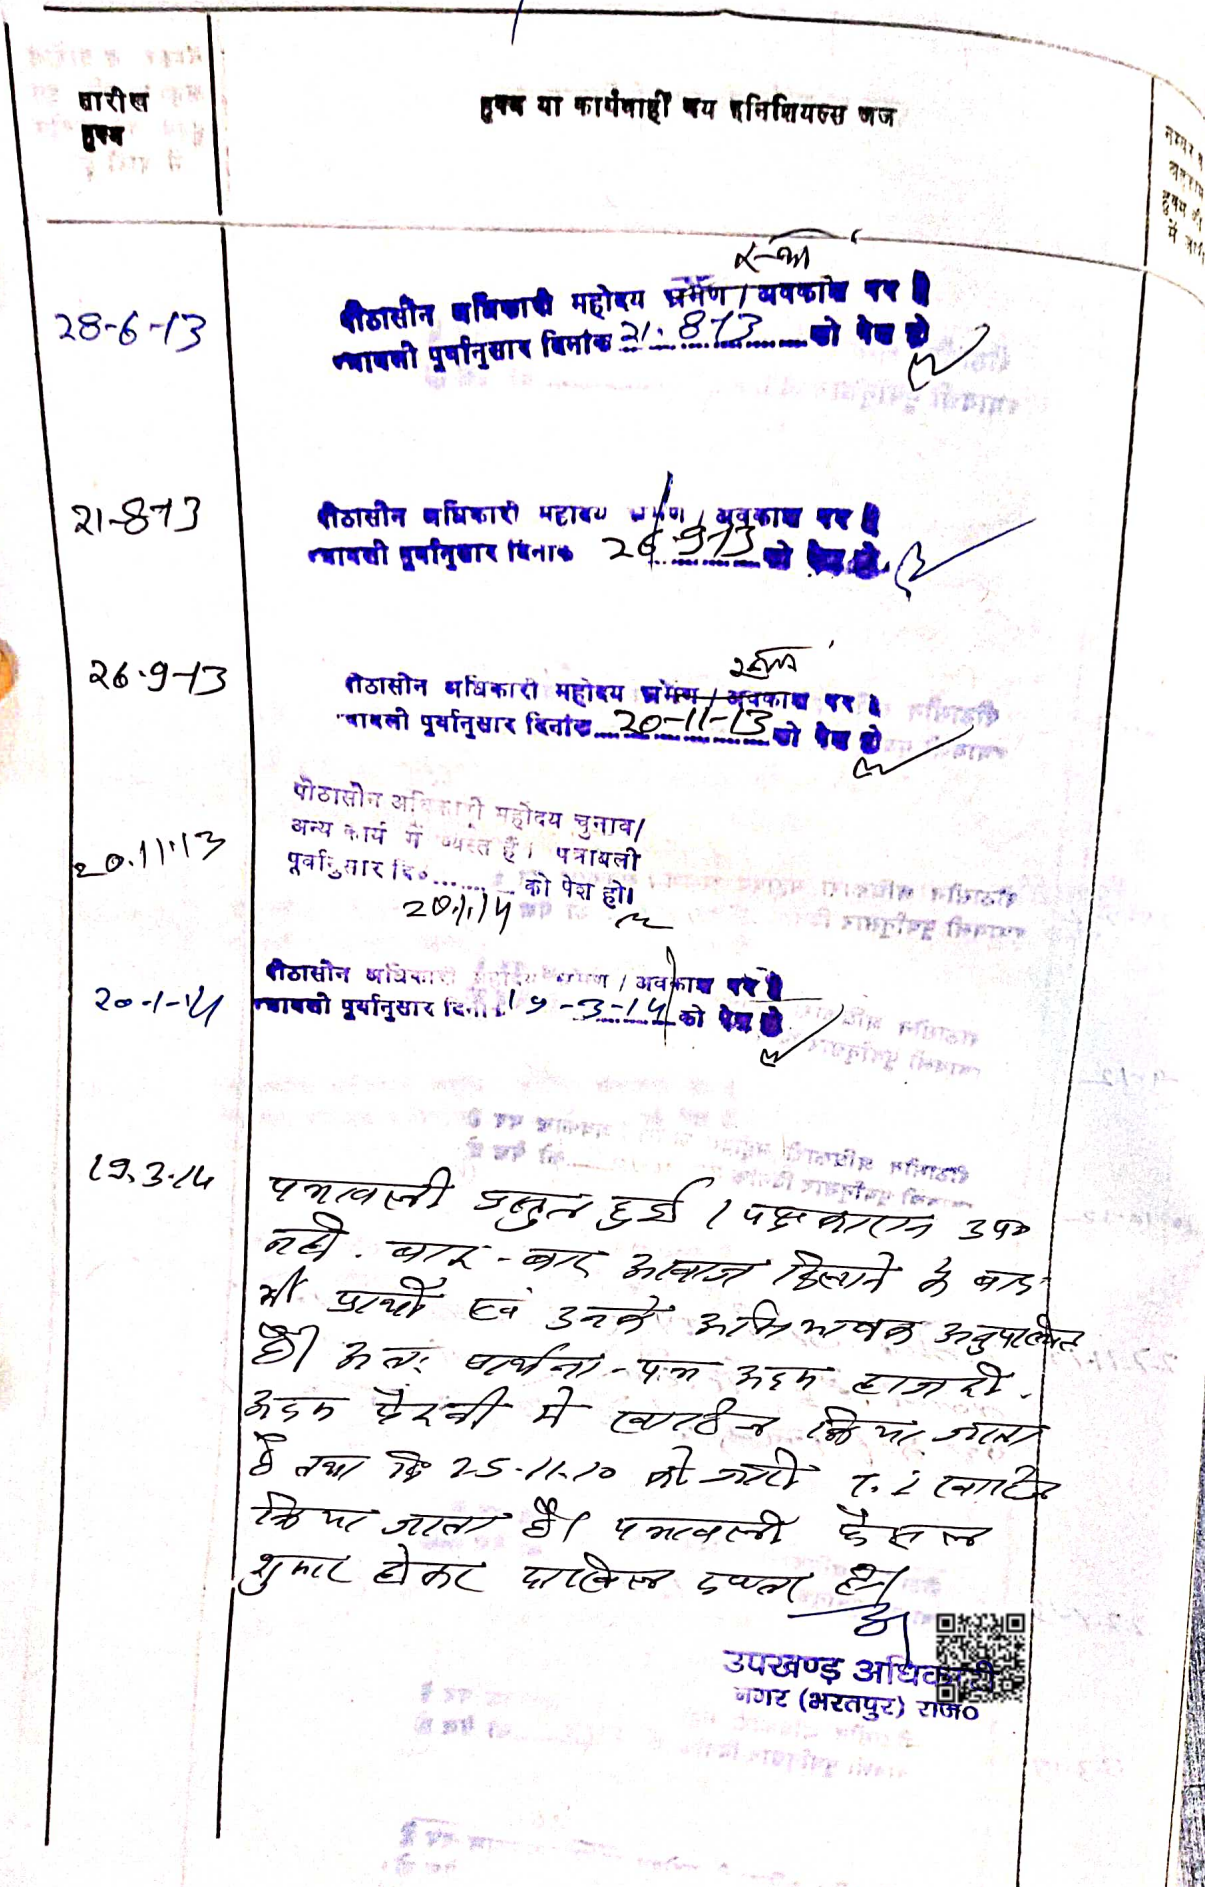 तारीख
हुक्म
हुक्म या कार्यवाही मय इनिशियल्स जज
नम्बर व
हुक्म की
में जारी
28-6-13
पीठासीन अधिकारी महोदय भ्रमण / अवकाश पर है
पत्रावली पूर्वानुसार दिनांक 21.8.13 को पेश हो
21-8-13
पीठासीन अधिकारी महोदय भ्रमण / अवकाश पर है
पत्रावली पूर्वानुसार दिनांक 26.9.13 को पेश हो
26-9-13
पीठासीन अधिकारी महोदय भ्रमण / अवकाश पर है
पत्रावली पूर्वानुसार दिनांक 20-11-13 को पेश हो
20.11.13
पीठासीन अधिकारी महोदय चुनाव/
अन्य कार्य में व्यस्त हैं। पत्रावली
पूर्वानुसार दि० ........ को पेश हो।
20.1.14
20-1-14
पीठासीन अधिकारी महोदय भ्रमण / अवकाश पर है
पत्रावली पूर्वानुसार दिनांक 19-3-14 को पेश हो
19.3.14
पत्रावली प्रस्तुत हुई। पक्षकारान उप०
नही. बार-बार आवाज दिलाने के बाद
भी प्रार्थी एवं उनके अभिभाषक अनुपस्थित
है। अतः प्रार्थना-पत्र अदम हाजरी.
अदम पैरवी मे खारिज किया जाता
है तथा दि० 25.11.10 को जारी T.I खारिज
किया जाता है। पत्रावली फैसल
शुमार होकर दाखिल दफ्तर हो।
उपखण्ड अधिकारी
नगर (भरतपुर) राज०